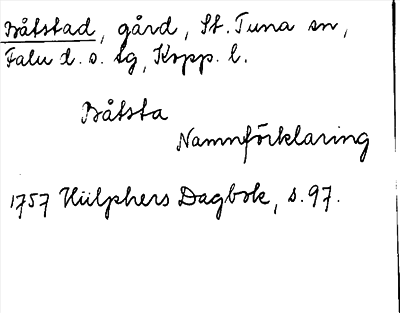 Båtstad, gård, St. Tuna sn,
Falu d. s. tg, Kopp. l.
Båtsta
Namnförklaring
1757 Hülphers Dagbok, s. 97.